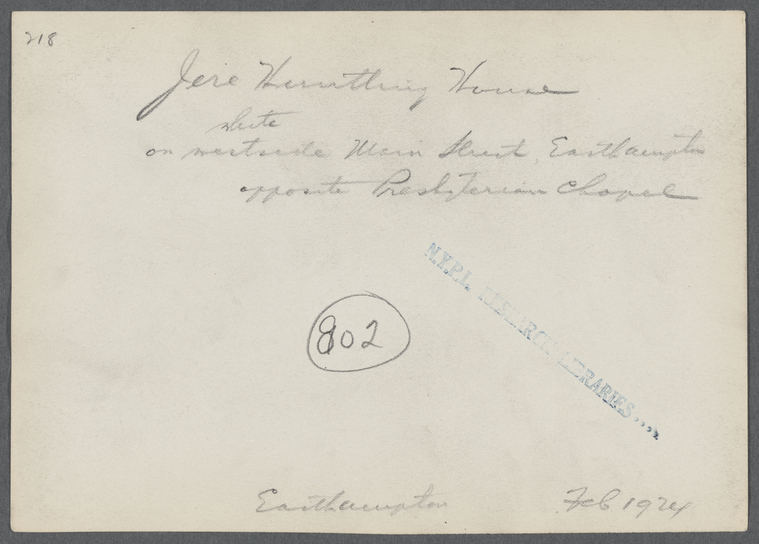 218
Jere Huntting House
white
on westside Main Street, Easthampton
opposite Presbyterian Chapel
N.Y.P.L. RESEARCH LIBRARIES....
802
Easthampton Feb 1924